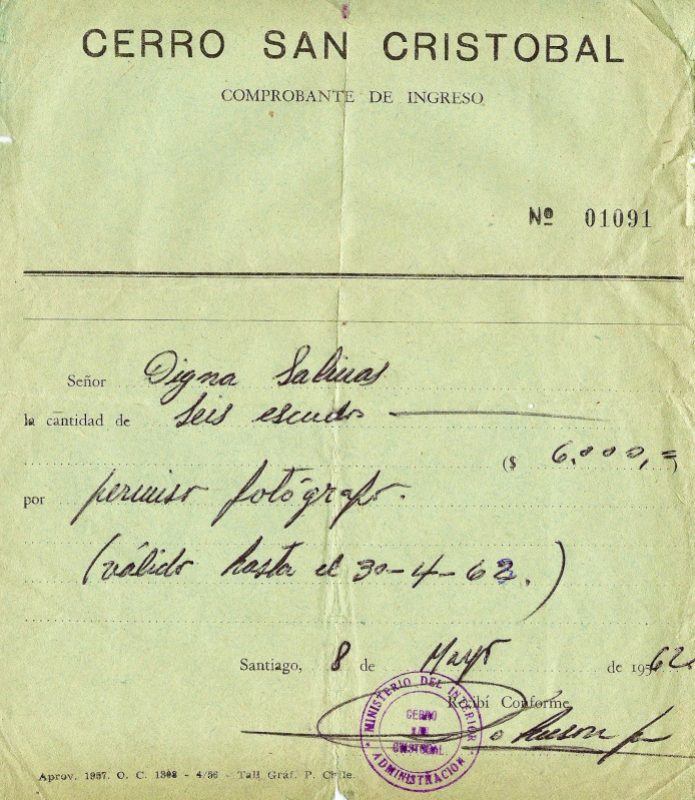 CERRO SAN CRISTOBAL
COMPROBANTE DE INGRESO
Nº 01091
Señor Digna Salinas
la cantidad de seis escudos
($ 6.000,=)
por permiso fotógrafo.
(válido hasta el 30-4-63.)
Santiago, 8 de Mayo de 1962
Recibí Conforme
MINISTERIO DEL INTERIOR
CERRO
SAN
CRISTOBAL
ADMINISTRACION
Aprov. 1957. O. C. 1398 - 4/56 - Tall Gráf. P. Chile.